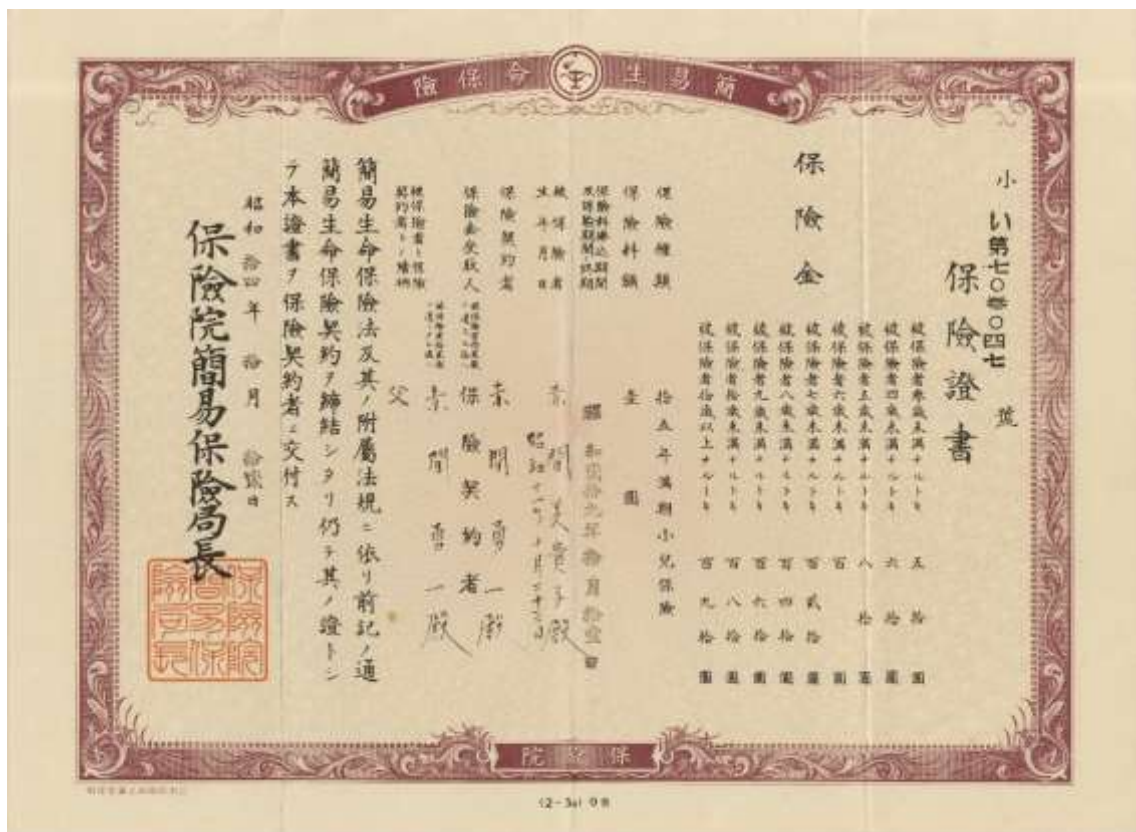 險保命生易簡
小い第七〇參〇四七號
保險證書
保險金
被保險者參歲未滿ナルトキ 五拾圓
被保險者四歲未滿ナルトキ 六拾圓
被保險者五歲未滿ナルトキ 八拾圓
被保險者六歲未滿ナルトキ 百圓
被保險者七歲未滿ナルトキ 百貳拾圓
被保險者八歲未滿ナルトキ 百四拾圓
被保險者九歲未滿ナルトキ 百六拾圓
被保險者拾歲未滿ナルトキ 百八拾圓
被保險者拾歲以上ナルトキ 百九拾圓
保險種類 拾五年滿期小兒保險
保險料額 壹圓
保險料拂込期間
及保險期間ノ終期 昭和貳拾九年拾月拾壹日
被保險者
生年月日
保險契約者 勇一殿
保險金受取人 保險契約者
被保險者ト保險
契約者トノ續柄 父
簡易生命保險法及其ノ附屬法規ニ依リ前記ノ通
簡易生命保險契約ヲ締結シタリ仍テ其ノ證トシ
テ本證書ヲ保險契約者ニ交付ス
昭和拾四年拾月
保險院簡易保險局長
保險院簡易保險局長
院險保